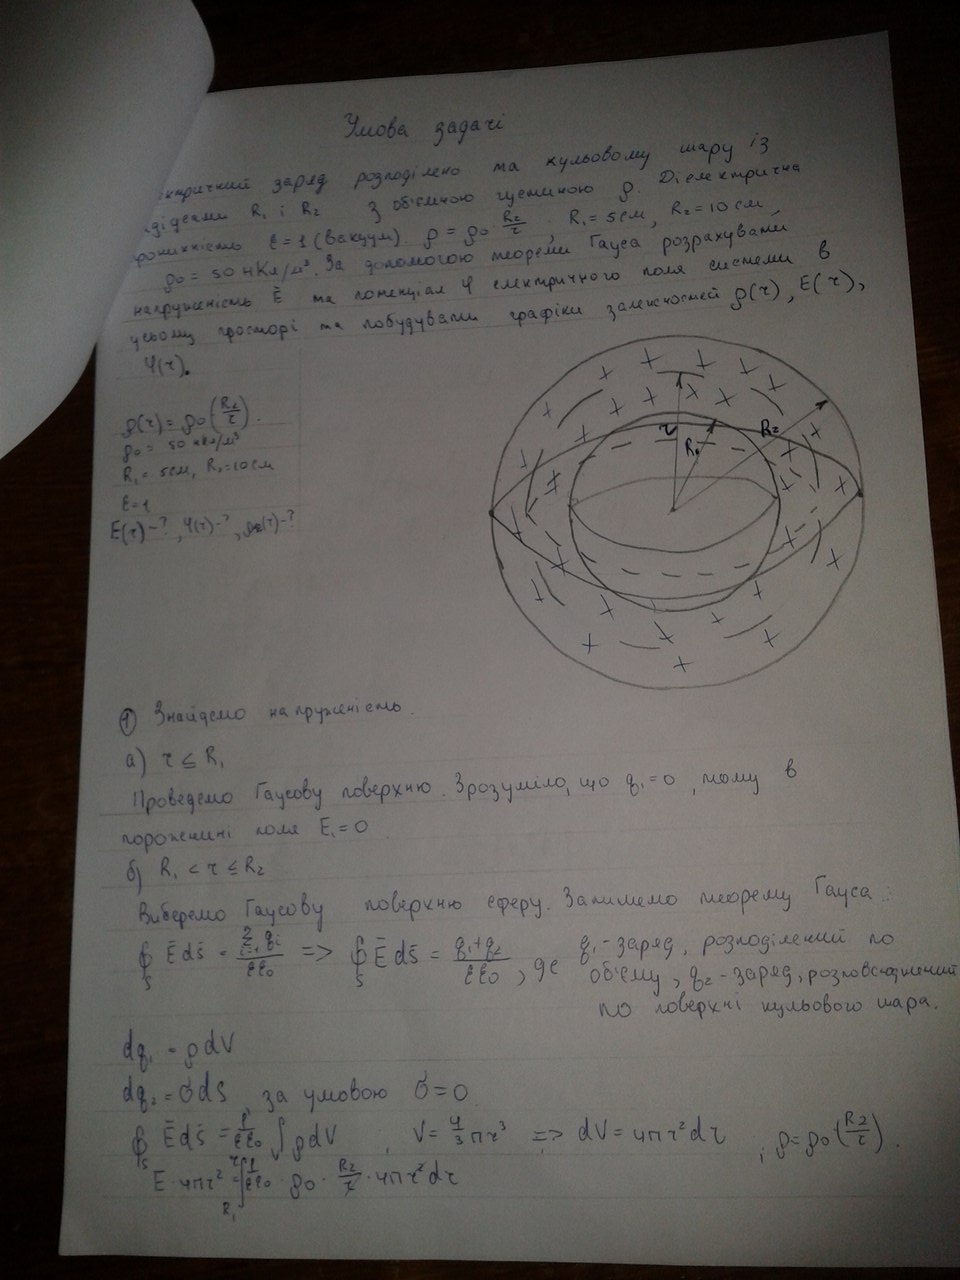 Умова задачі
ктричний заряд розподілено та кульовому шару із
адіусами R₁ і R₂ з об'ємною густиною ρ. Діелектрична
роникність ε=1 (вакуум) ρ = ρ₀ R₂/r, R₁ = 5 см, R₂ = 10 см,
ρ₀ = 50 нКл/м³. За допомогою теореми Гауса розрахувати
напруженість Ē та потенціал φ електричного поля системи в
усьому просторі та побудувати графіки залежностей ρ(r), E(r),
φ(r).
ρ(r) = ρ₀(R₂/r).
ρ₀ = 50 нКл/м³
R₁ = 5 см, R₂ = 10 см
ε=1
E(r)-?, φ(r)-?, ρ(r)-?
r
R₁
R₂
① Знайдемо напруженість.
а) r ≤ R₁
Проведемо Гаусову поверхню. Зрозуміло, що q₁ = 0, тому в
порожнині поля E₁ = 0
б) R₁ < r ≤ R₂
Виберемо Гаусову поверхню сферу. Запишемо теорему Гауса:
∮ₛ Ēds̄ = Σ²ᵢ₌₁ qᵢ/εε₀ => ∮ₛ Ēds̄ = (q₁+q₂)/εε₀, де q₁ - заряд, розподілений по
об'єму, q₂ - заряд, розповсюджений
по поверхні кульового шара.
dq₁ = ρdV
dq₂ = σds, за умовою σ = 0
∮ₛ Ēds̄ = 1/εε₀ ∫ρdV, V = 4/3 πr³ => dV = 4πr²dr, ρ = ρ₀(R₂/r).
E·4πr² = ∫ 1/εε₀ · ρ₀ · R₂/r · 4πr²dr
r
R₁